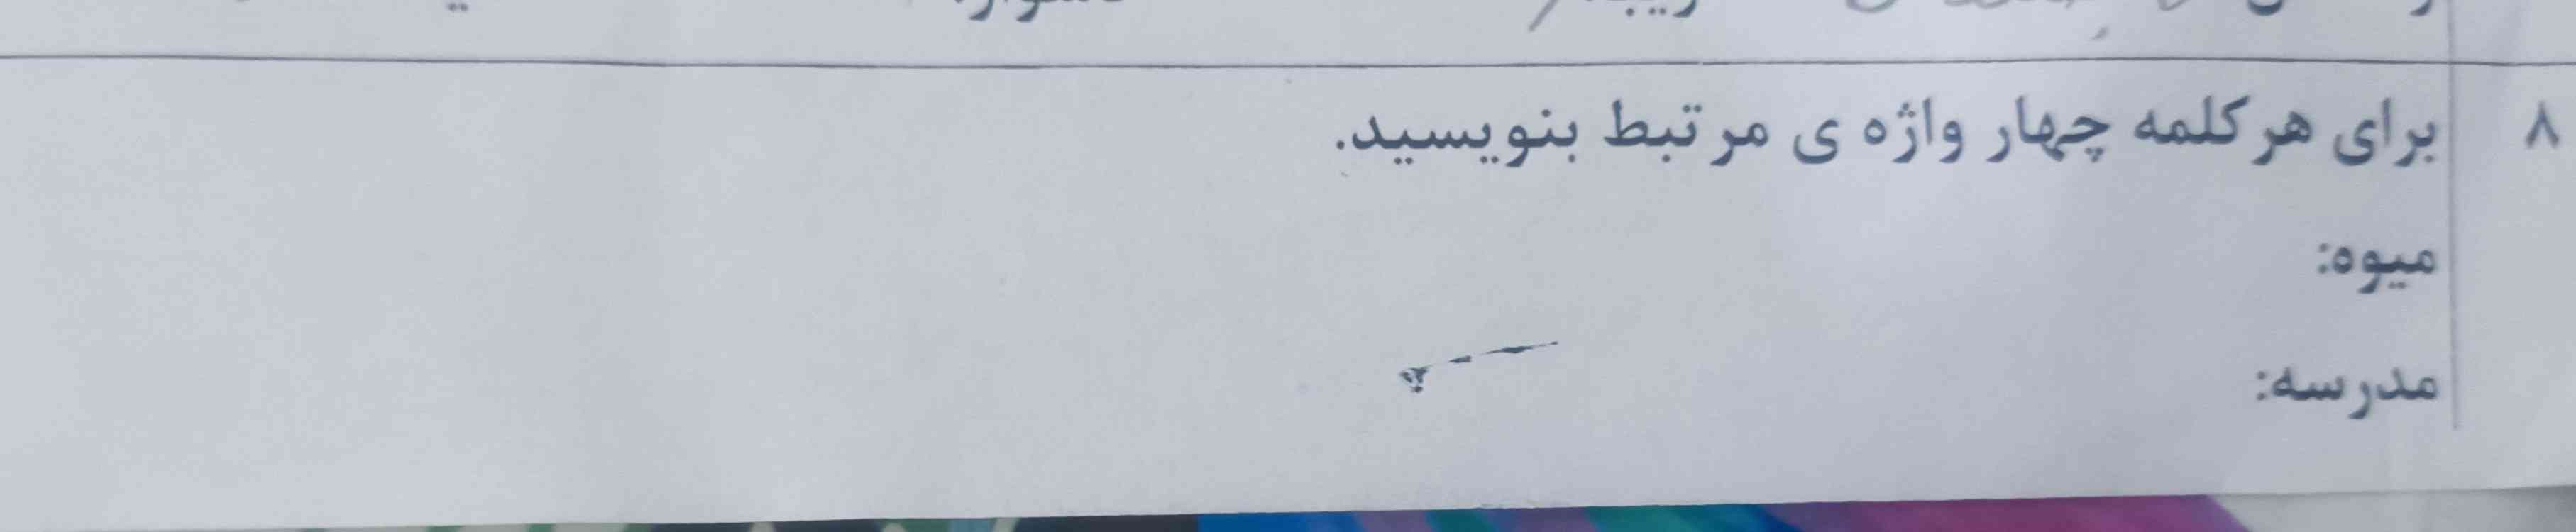 ۸ برای هر کلمه چهار واژه ی مرتبط بنویسید.
میوه:
مدرسه: